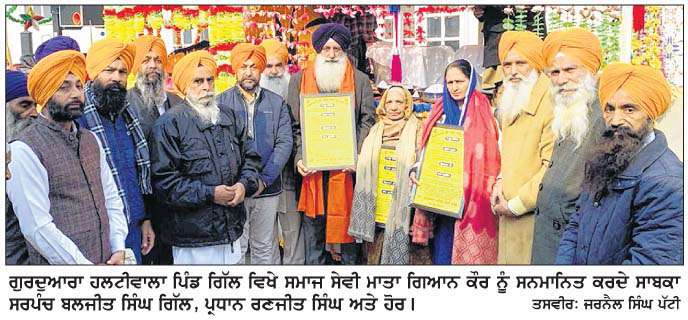 ਗੁਰਦੁਆਰਾ ਹਲਟੀਵਾਲਾ ਪਿੰਡ ਗਿੱਲ ਵਿਖੇ ਸਮਾਜ ਸੇਵੀ ਮਾਤਾ ਗਿਆਨ ਕੌਰ ਨੂੰ ਸਨਮਾਨਿਤ ਕਰਦੇ ਸਾਬਕਾ
ਸਰਪੰਚ ਬਲਜੀਤ ਸਿੰਘ ਗਿੱਲ, ਪ੍ਰਧਾਨ ਰਣਜੀਤ ਸਿੰਘ ਅਤੇ ਹੋਰ।
ਤਸਵੀਰ: ਜਰਨੈਲ ਸਿੰਘ ਪੱਟੀ